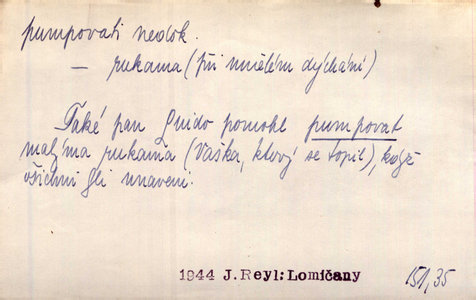 pumpovati nedok.
— rukama (při umělém dýchání)
Také pan Guido pomohl pumpovat
malýma rukama (Vaška, který se topil), když
všichni byli unaveni.
1944 J.Reyl:Lomičany
151,35